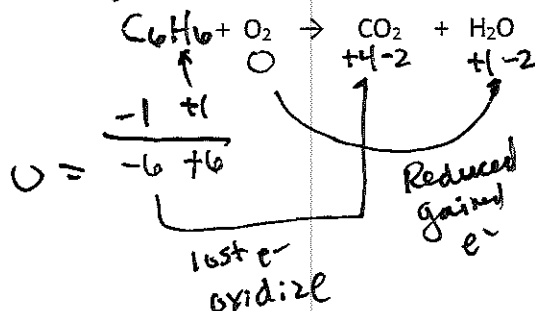 C₆H₆ + O₂ → CO₂ + H₂O
0 +4 -2 +1 -2
-1 +1
0 = -6 +6
Reduced
gained
e-
lost e-
oxidize